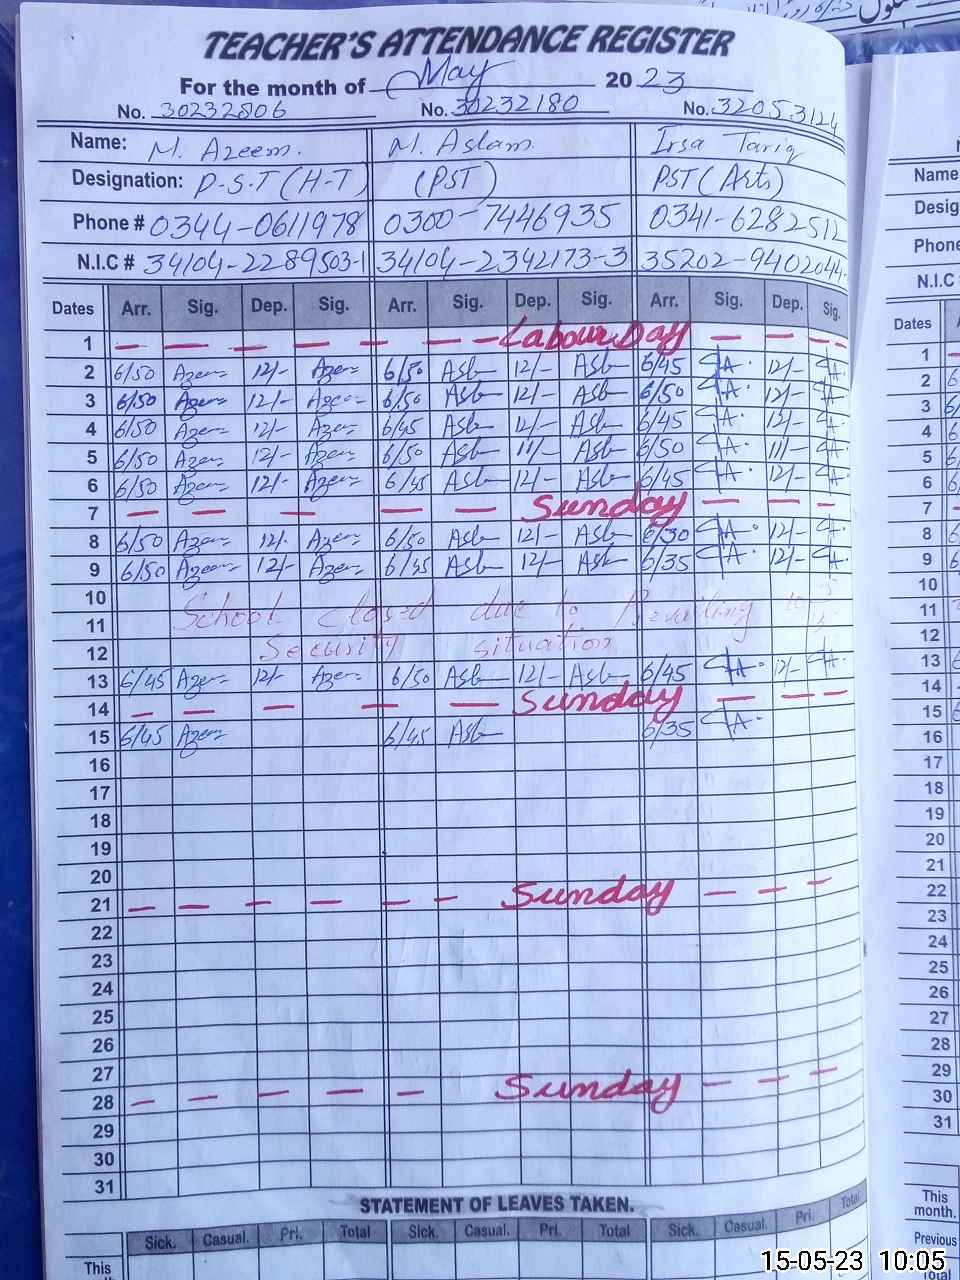 TEACHER'S ATTENDANCE REGISTER
For the month of May 2023
No. 30232806 No. 30232180 No. 32053124
Name: M. Azeem. M. Aslam Irsa Tariq
Designation: P.S.T (H-T) (PST) PST (Arts)
Phone # 0344-0611978 0300-7446935 0341-6282512
N.I.C # 34104-2289503-1 34104-2342173-3 35202-9402044-
Dates Arr. Sig. Dep. Sig. Arr. Sig. Dep. Sig. Arr. Sig. Dep. Sig.
1 — — — — — — — Labour Day — — — —
2 6/50 Azeem 12/- Azeem 6/50 Asl 12/- Asl 6/45 12/-
3 6/50 Azeem 12/- Azeem 6/50 Asl 12/- Asl 6/50 12/-
4 6/50 Azeem 12/- Azeem 6/45 Asl 12/- Asl 6/45 12/-
5 6/50 Azeem 12/- Azeem 6/50 Asl 11/- Asl 6/50 11/-
6 6/50 Azeem 12/- Azeem 6/45 Asl 12/- Asl 6/45 12/-
7 — — — — — Sunday — — —
8 6/50 Azeem 12/- Azeem 6/50 Asl 12/- Asl 6/30 12/-
9 6/50 Azeem 12/- Azeem 6/45 Asl 12/- Asl 6/35 12/-
10
11 School closed due to Prevailing
12 Security situation
13 6/45 Azeem 12/- Azeem 6/50 Asl 12/- Asl 6/45 12/-
14 — — — — — Sunday — — —
15 6/45 Azeem 6/45 Asl 6/35
16
17
18
19
20
21 — — — — — — Sunday — — —
22
23
24
25
26
27
28 — — — — — Sunday — — —
29
30
31
STATEMENT OF LEAVES TAKEN.
Sick. Casual. Pri. Total Sick. Casual. Pri. Total Sick. Casual. Pri. Total
This
Name
Desig
Phone
N.I.C
Dates
1
2
3
4
5
6
7
8
9
10
11
12
13
14
15
16
17
18
19
20
21
22
23
24
25
26
27
28
29
30
31
This
month.
Previous
Total
15-05-23 10:05